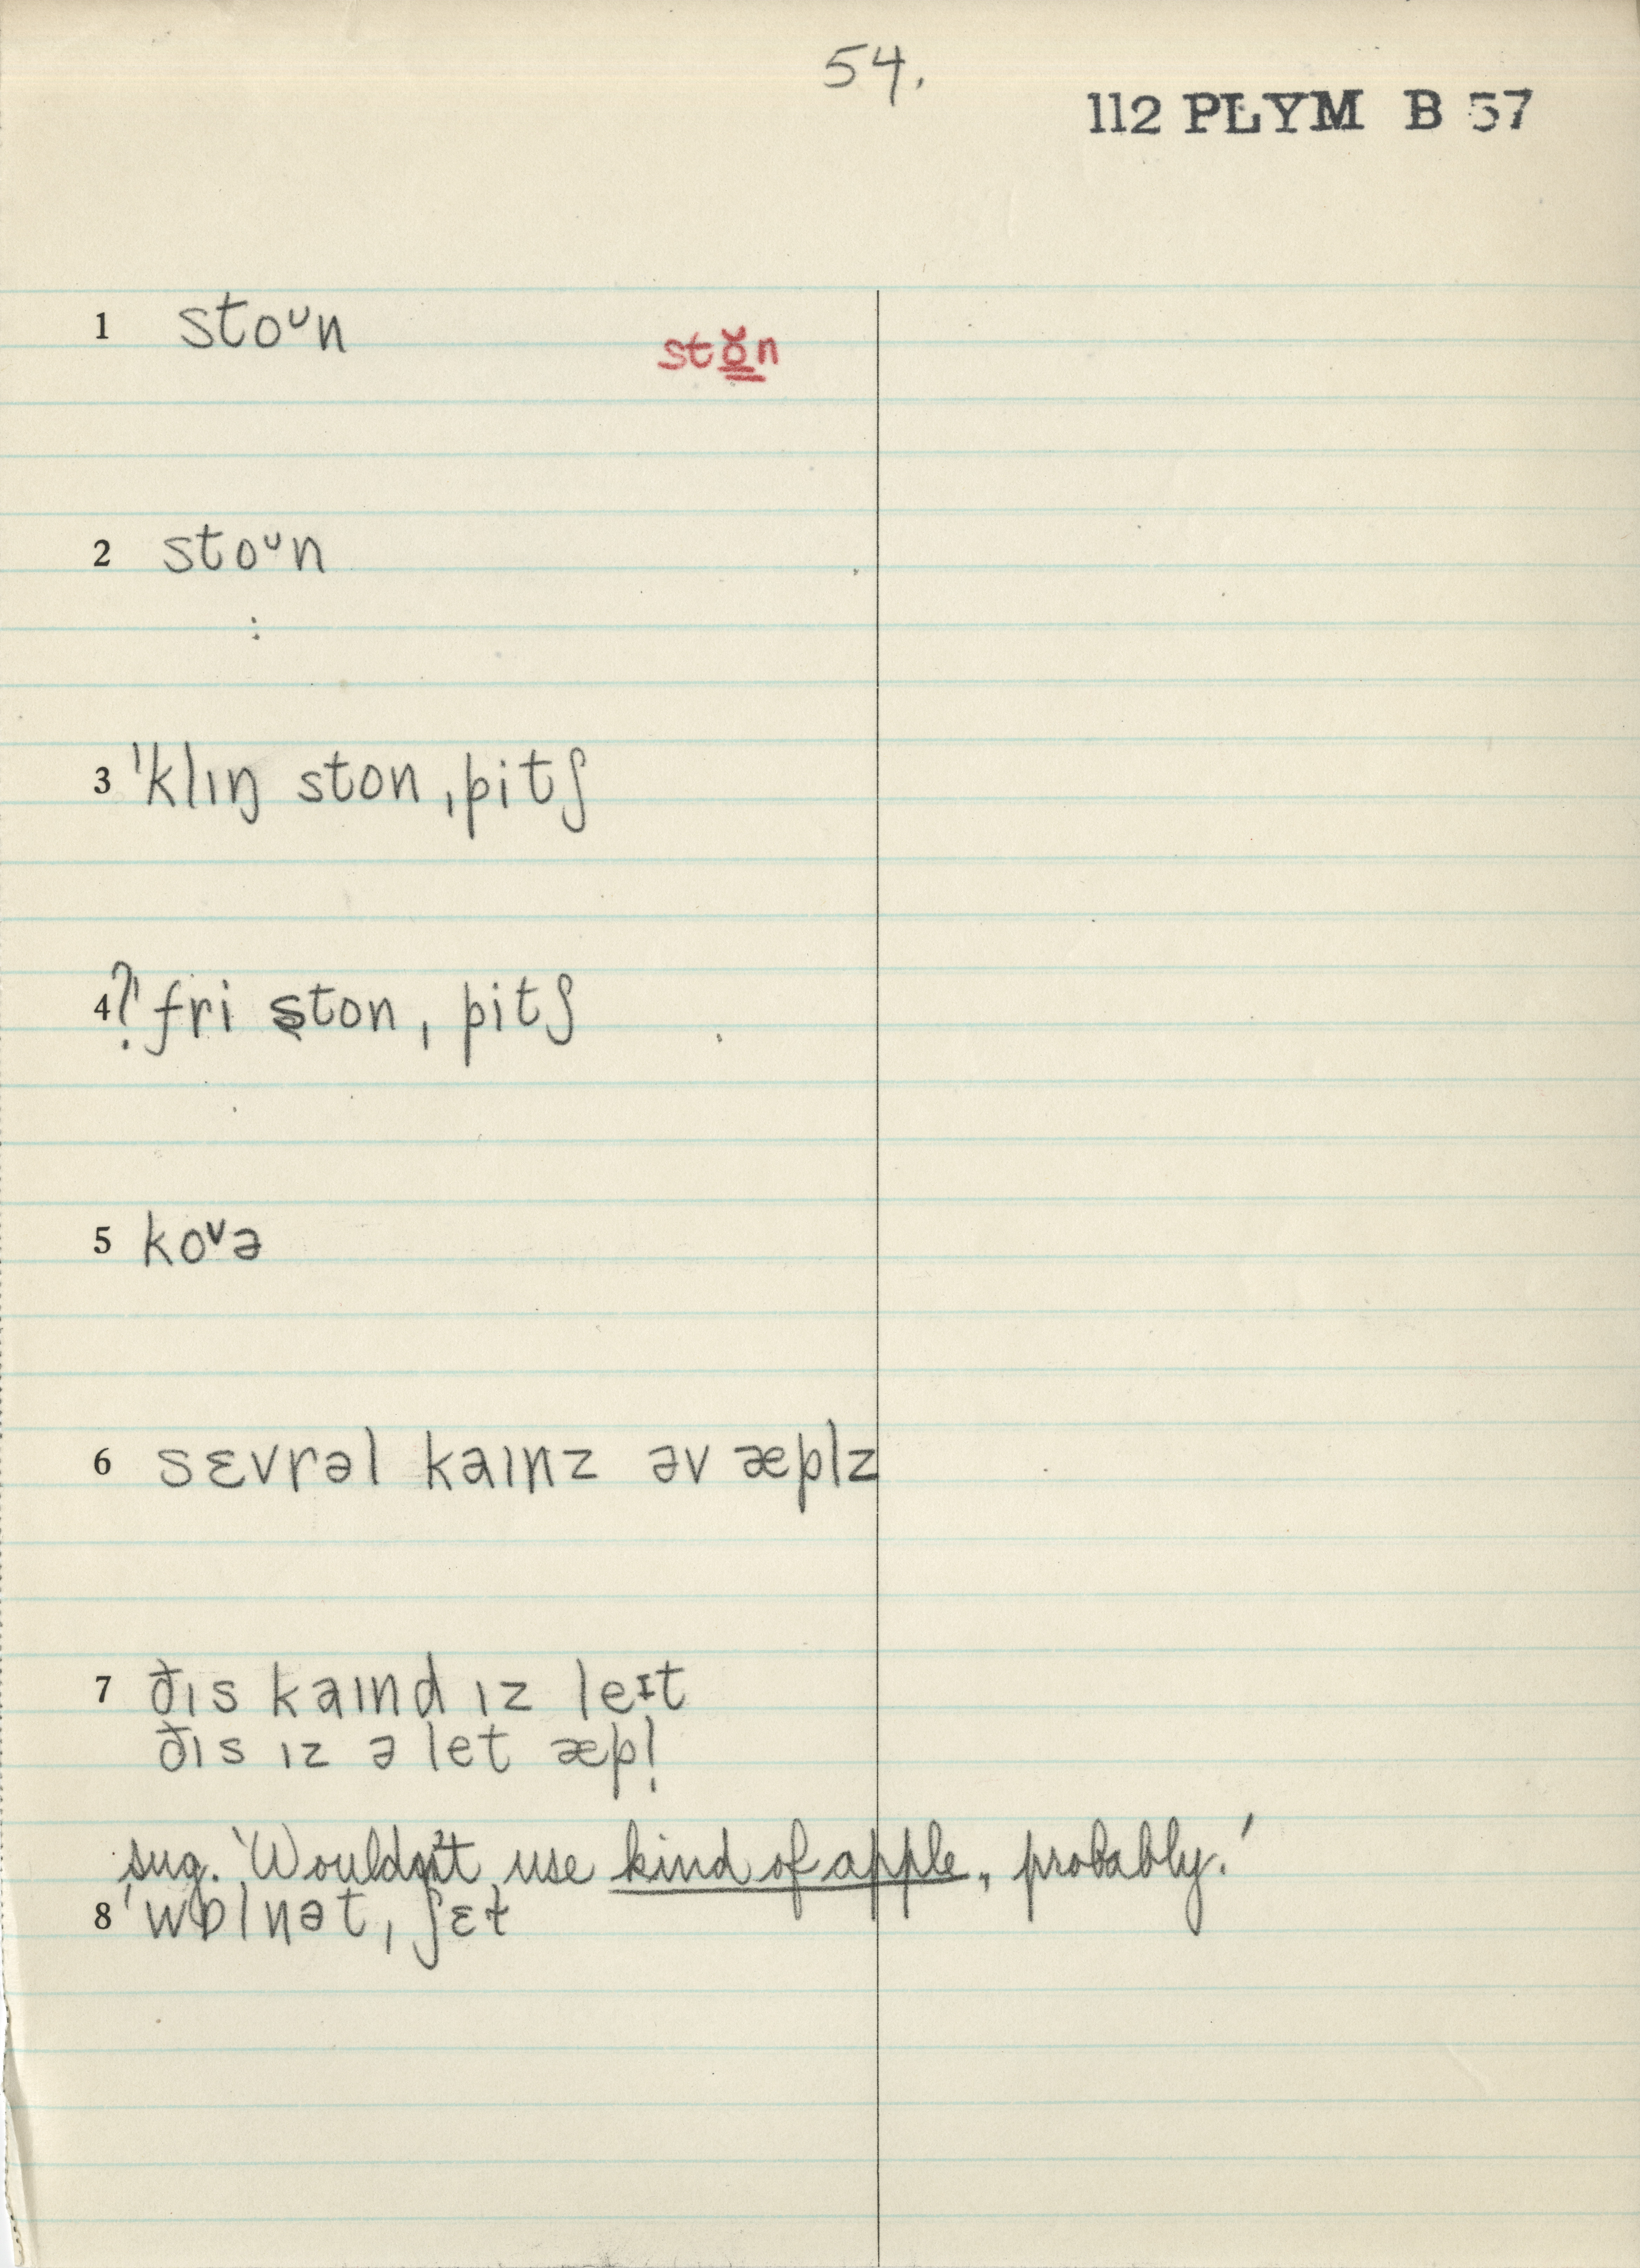 54.
112 PLYM B 57
1 stoᴜn
stŏ̳n
2 stoᴜn
:
3 ˈklɪŋ ston ˌpitʃ
4 ?ˈfri ston ˌpitʃ
5 koᵛə
6 sɛvrəl kaɪnz əv æplz
7 ðɪs kaɪnd ɪz leᶦt
ðɪs ɪz ə let æpl̩
sug. 'Wouldn't use kind of apple, probably.'
8 ˈwɒlnət ˌʃɛɫ